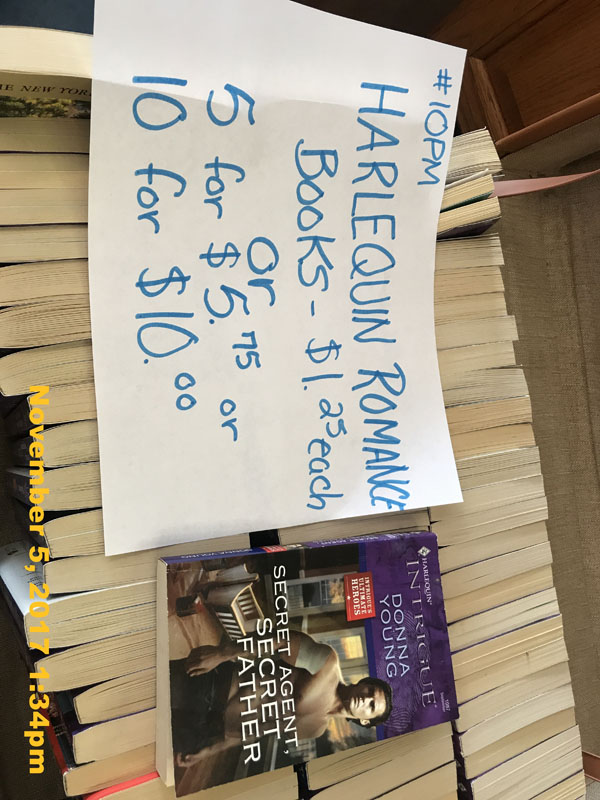 #10PM
HARLEQUIN ROMANCE
BOOKS - $1.25 each
or
5 for $5.75 or
10 for $10.00
HARLEQUIN
INTRIGUE
DONNA
YOUNG
INTRIGUE'S
ULTIMATE
HEROES
SECRET AGENT,
SECRET
FATHER
THE NEW YOR
November 5, 2017 1:34pm